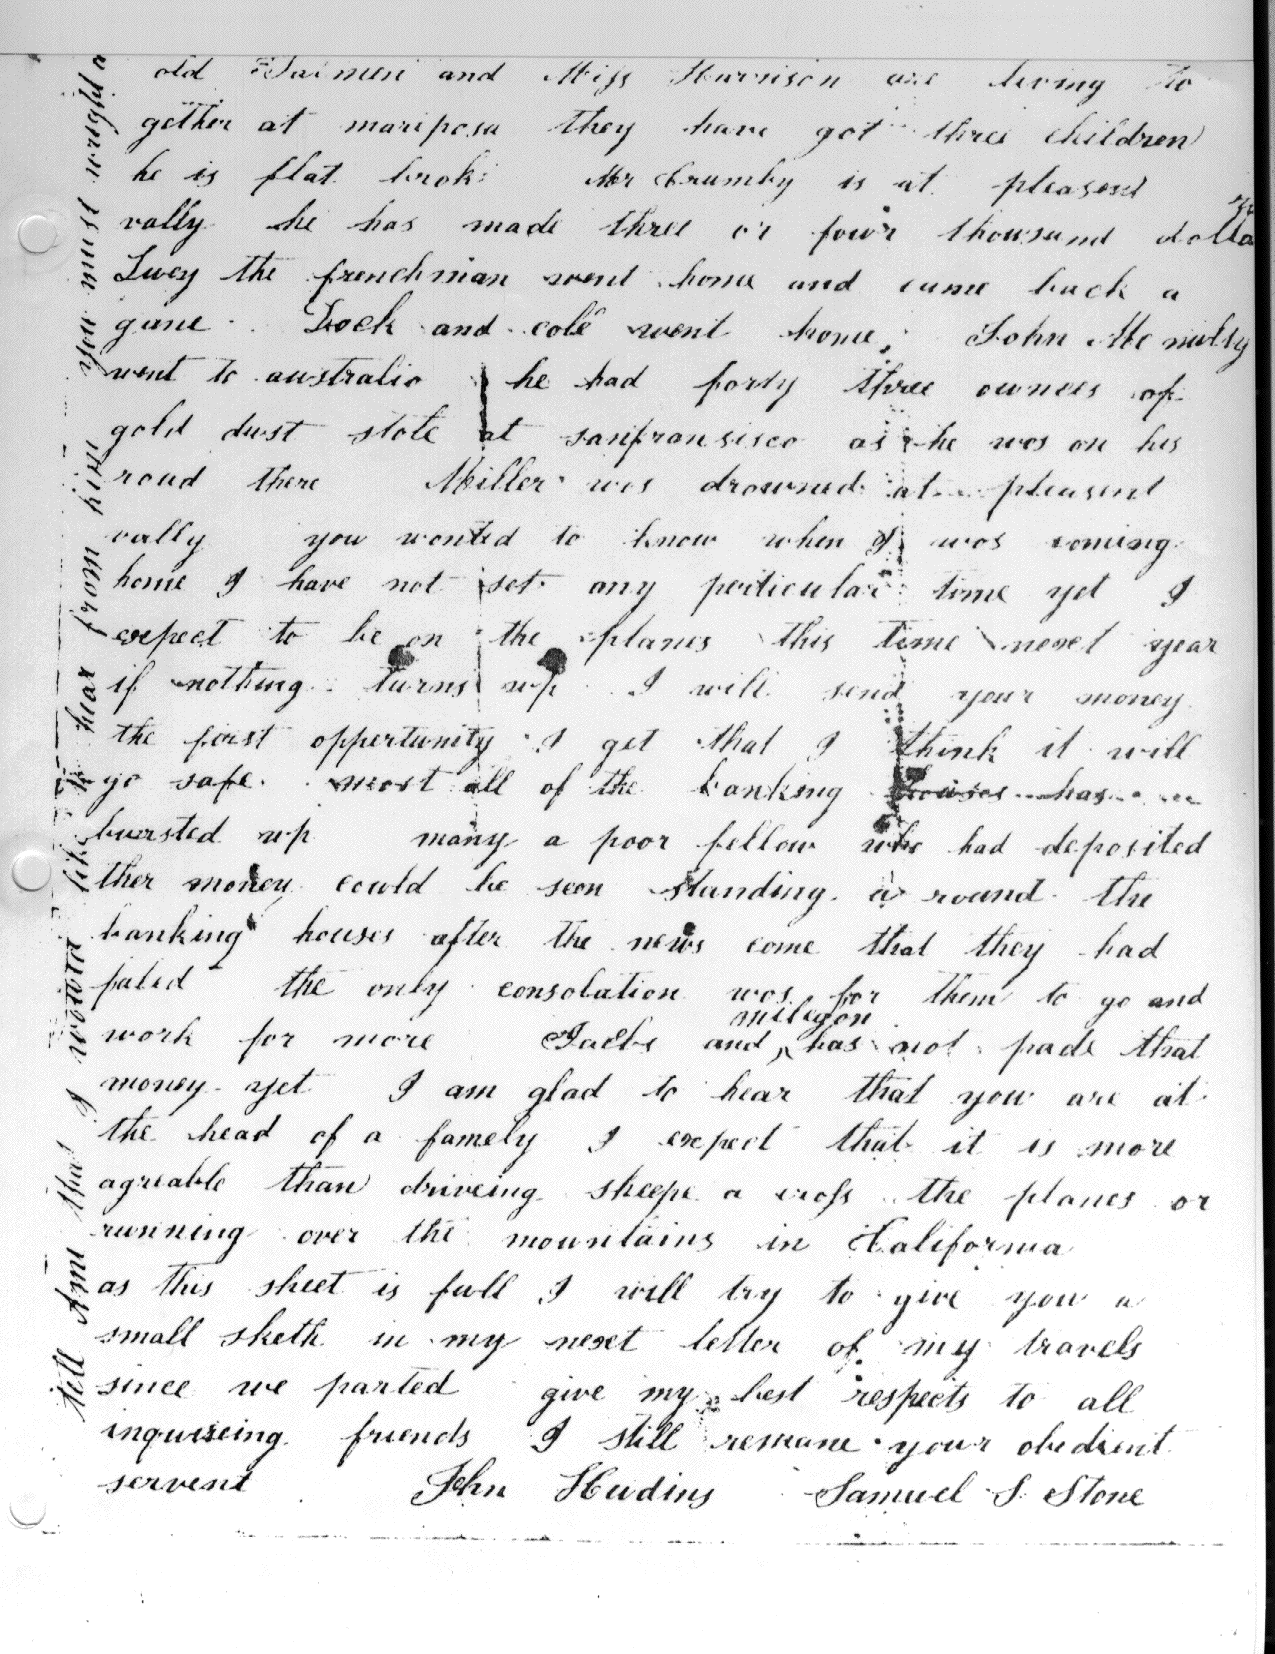 old Salmen and Miss Harrison are living to
gether at mariposa they have got three children
he is flat broke Mr Crumby is at pleasent
vally he has made three or four thousand dollars
Lucy the frenchman went home and came back a
gane Lock and cole went home John Mc nulty
went to australia he had forty three ownces of
gold dust stole at sanfransisco as he was on his
road there Miller was drowned at pleasent
vally you wonted to know when I was coming
home I have not set any perticular time yet I
expect to be on the planes this time next year
if nothing turns up I will send your money
the first oppertunity I get that I think it will
go safe most all of the banking houses has
bursted up many a poor fellow who had deposited
ther money could be seen standing a round the
banking houses after the news come that they had
faled the only consolation was for them to go and
milegon
work for more Jacobs and has not pade that
money yet I am glad to hear that you are at
the head of a famely I expect that it is more
agreable than driveing sheepe a cross the planes or
running over the mountains in California
as this sheet is full I will try to give you a
small sketh in my next letter of my travels
since we parted give my best respects to all
inquireing friends I still remane your obedient
servent John Hudins Samuel S Stone
tell Ame that I would like to hear from him you must wright a